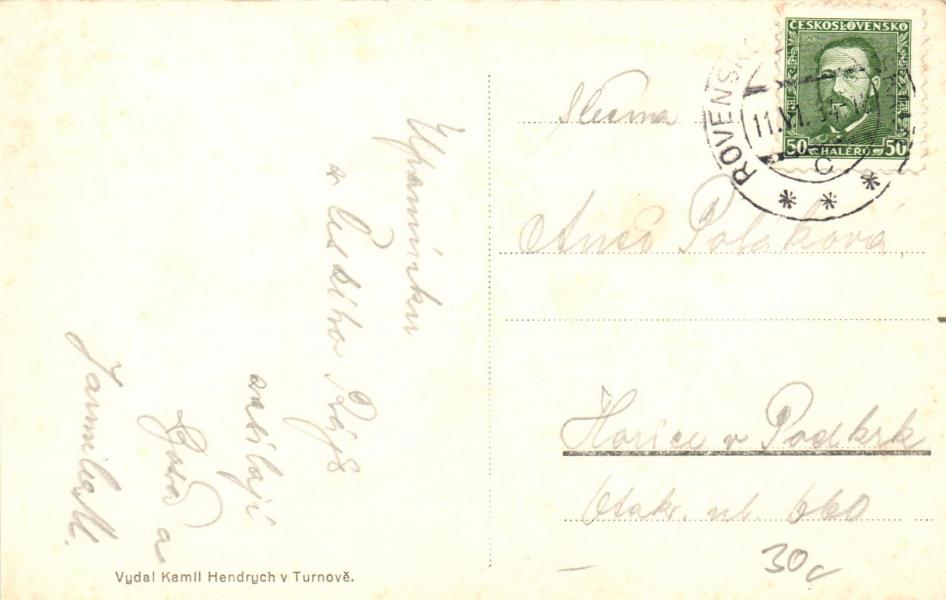 Upomínku
z Českého Ráje
zasílají
a
Jarmila M.
Vydal Kamil Hendrych v Turnově.
ČESKOSLOVENSKO
50 HALÉŘŮ 50
ROVENSKO
11.VI.34
C
Slečna
Poláková
Hořice v Podkrk
Otakr. ul. 660
30